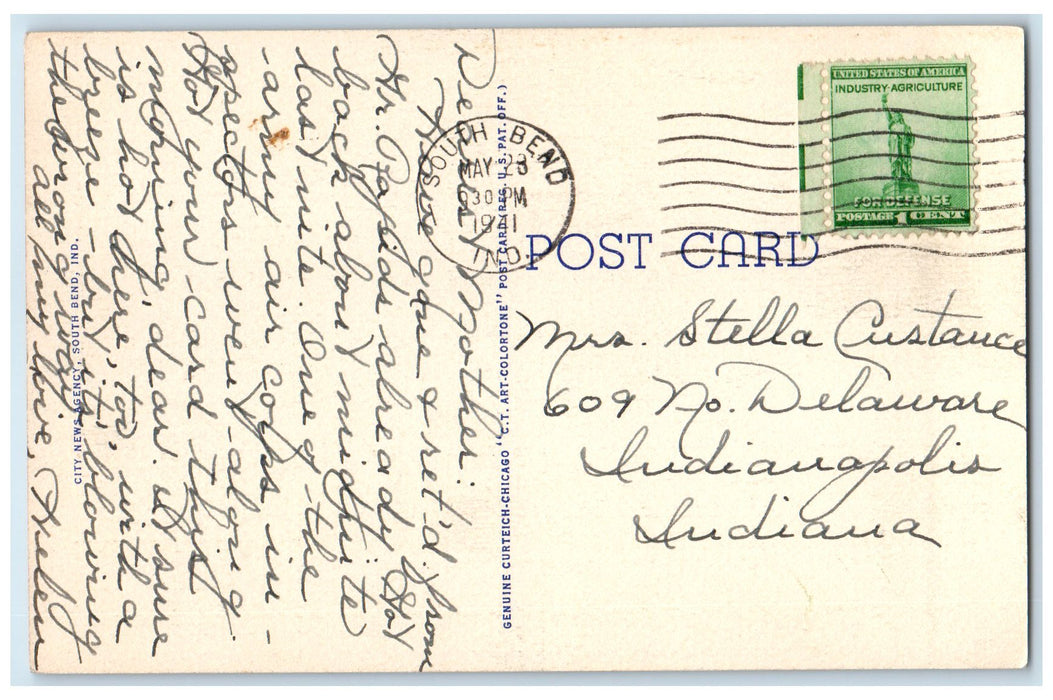 Dearest Mother:
Have gone & ret'd. from
Gr. Rapids already. Got
back about midnite
last nite. One of the
army air corps in-
spectors went along.
Got your card this
morning, dear. It sure
is hot here, too, with a
breeze - but it's blowing
the wrong way.
All my love, Helen
CITY NEWS AGENCY, SOUTH BEND, IND.
GENUINE CURTEICH-CHICAGO "C.T. ART-COLORTONE" POST CARD (REG. U.S. PAT. OFF.)
SOUTH BEND
MAY 23
930 PM
1941
IND.
UNITED STATES OF AMERICA
INDUSTRY·AGRICULTURE
FOR DEFENSE
POSTAGE 1 CENT
POST CARD
Mrs. Stella Custance
609 No. Delaware
Indianapolis
Indiana